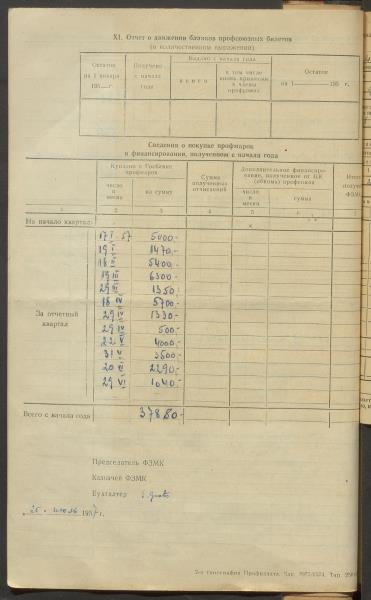 XI. Отчет о движении бланков профсоюзных билетов
(в количественном выражении)
Остаток на 1 января 195 г.
Получено с начала года
Выдано с начала года
всего
в том числе вновь принятым в члены профсоюза
Остаток на 1 195 г.
Сведения о покупке профмарок
и финансировании, полученном с начала года
Куплено в Госбанке профмарок
число и месяц
на сумму
Сумма полученных отчислений
Дополнительное финансирование, полученное от ЦК (обкома) профсоюза
число и месяц
сумма
1 2 3 4 5 6
На начало квартала
За отчетный квартал
17 I 57 5000-
19 I 1470-
18 II 5400-
19 III 6300-
29 III 1350-
18 IV 5700-
29 IV 1330-
29 IV 500-
22 V 4000-
31 V 3500-
20 VI 2290-
29 VI 1040-
Всего с начала года 37880-
Председатель ФЗМК
Казначей ФЗМК
Бухгалтер
1957 г.